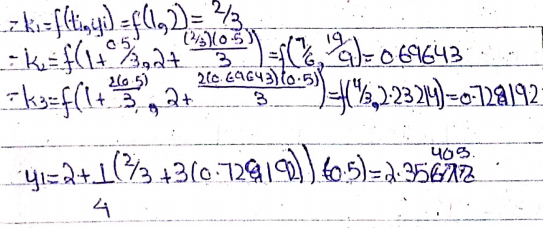 = k₁ = f(ti, yi) = f(1, 2) = 2/3
= k₂ = f(1 + 0.5/3, 2 + (2/3)(0.5)/3) = f(7/6, 19/9) = 0.69643
= k₃ = f(1 + 2(0.5)/3, 2 + 2(0.69643)(0.5)/3) = f(4/3, 2.23214) = 0.728192
y₁ = 2 + 1/4 (2/3 + 3(0.728192)) (0.5) = 2.356403